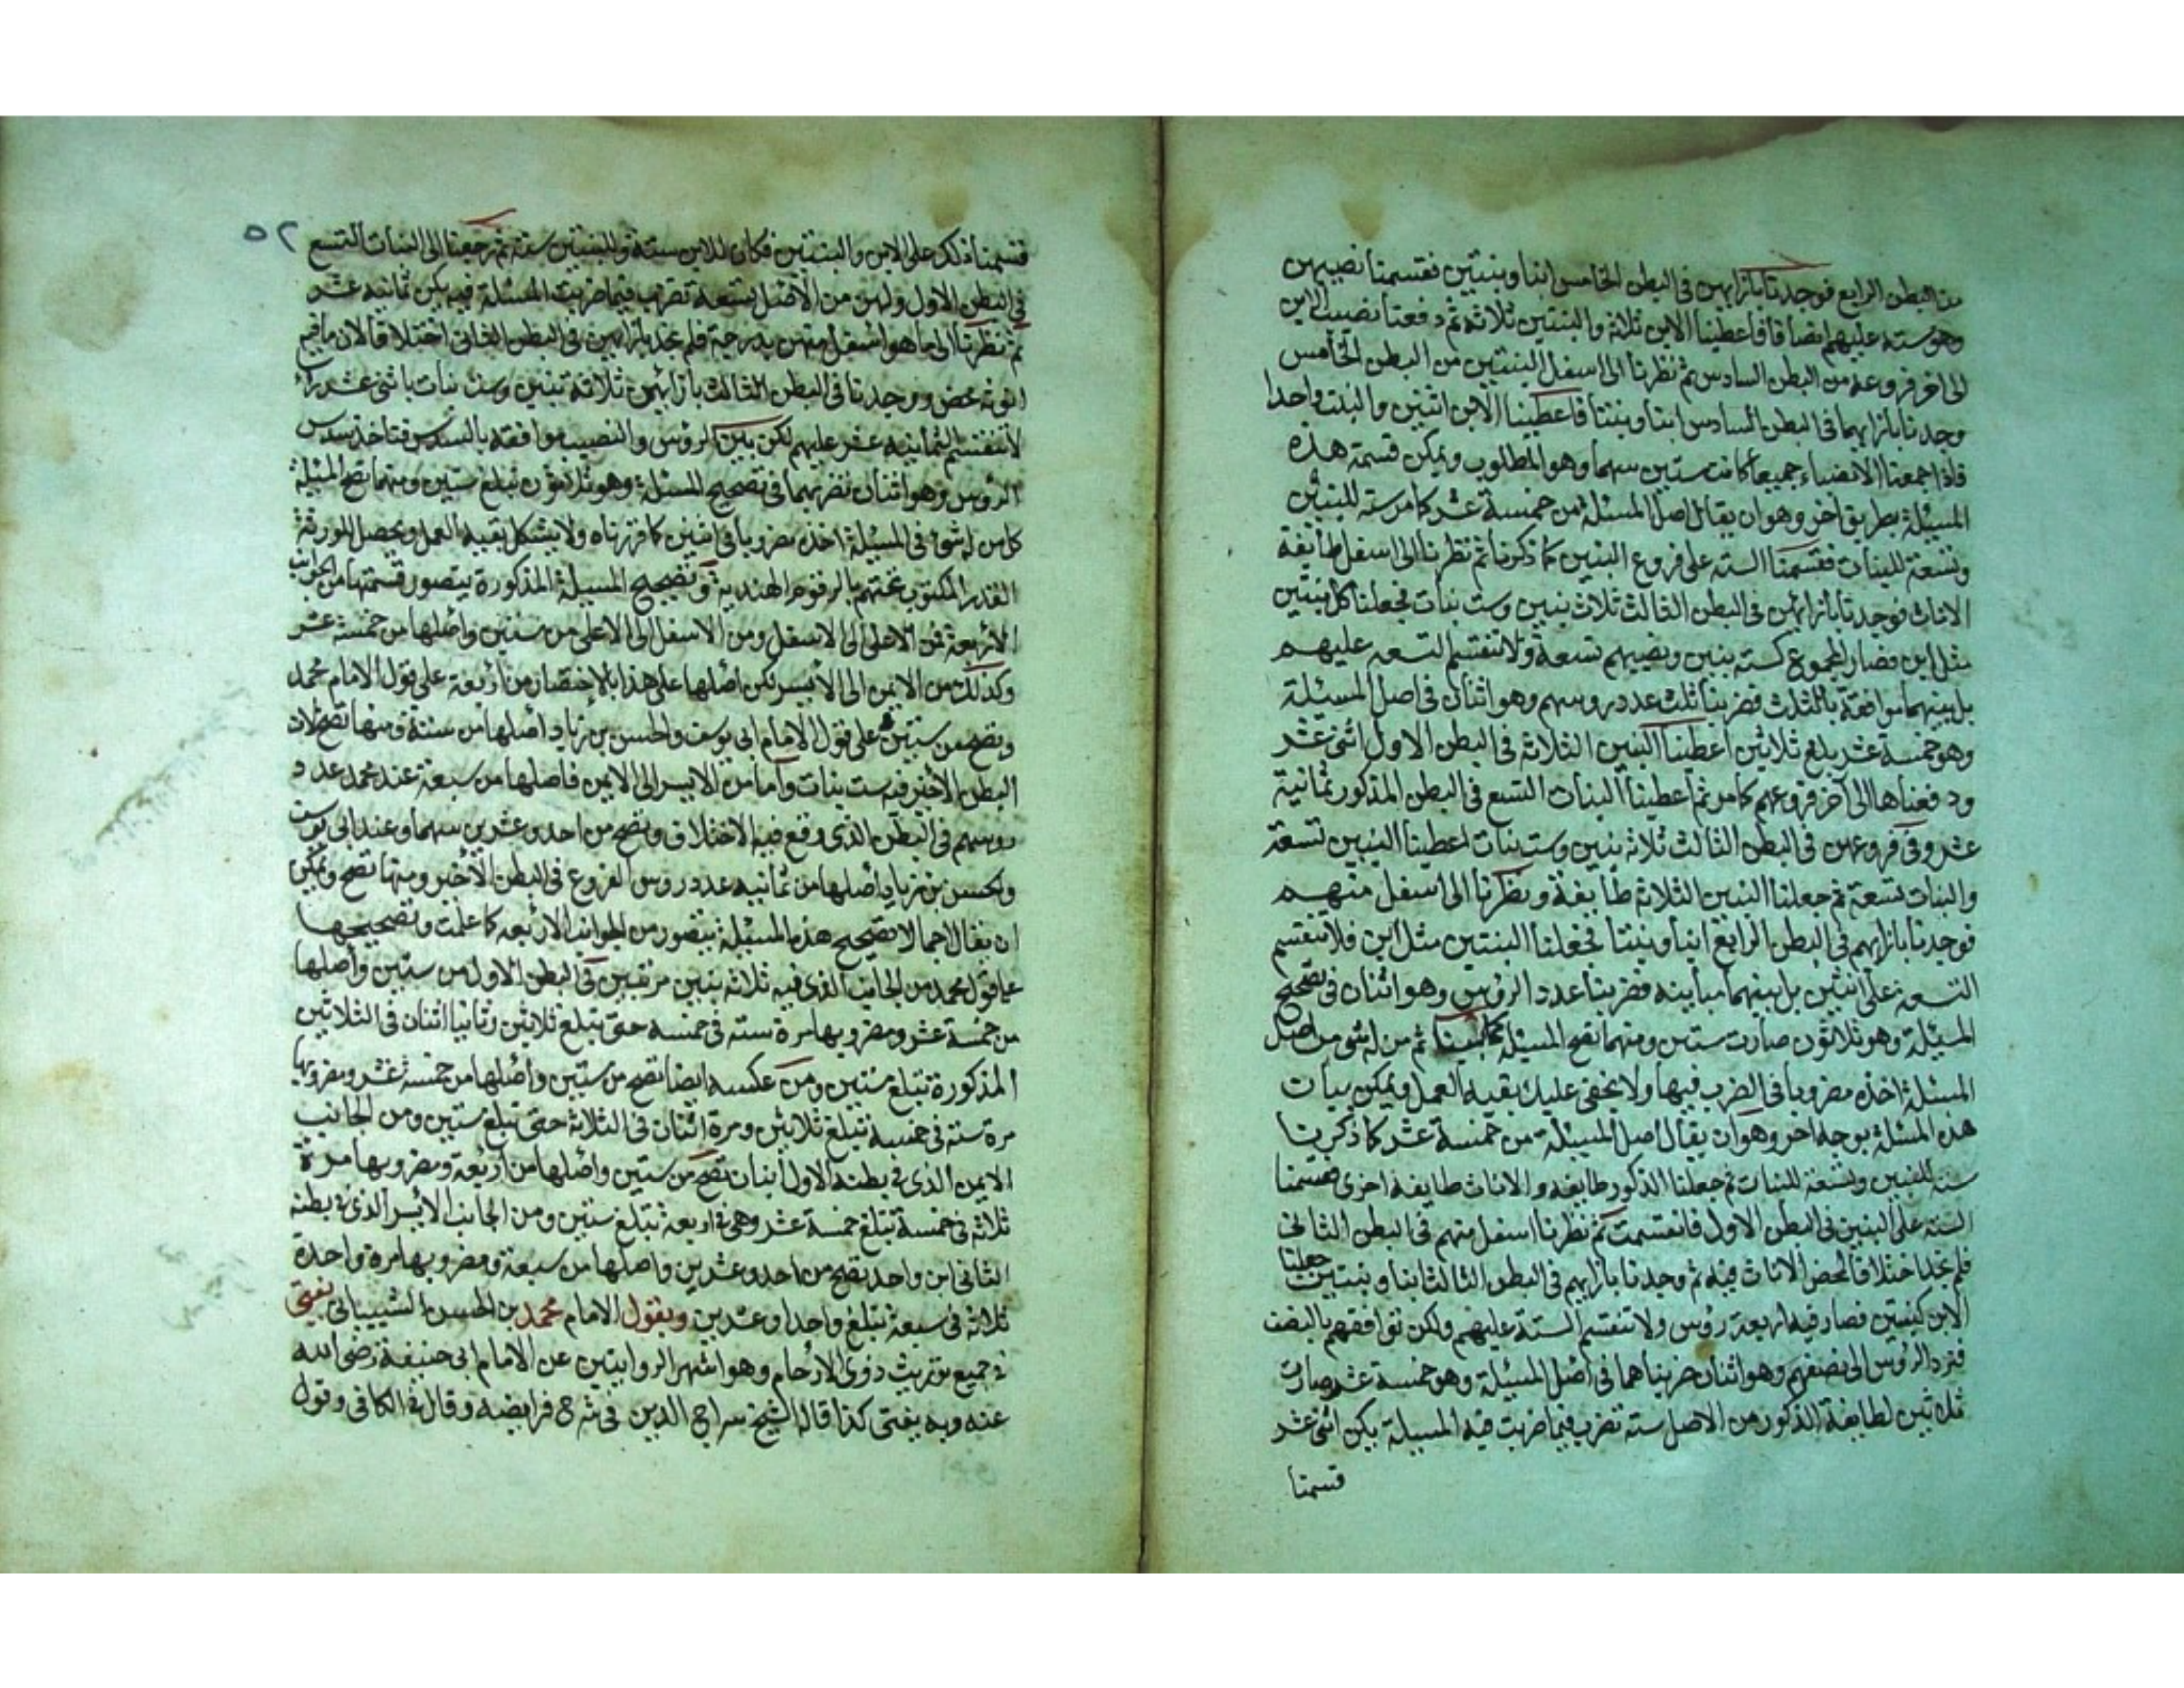 من البطن الرابع فوجدنا بازايهن في البطن الخامس ابنا وبنتين فقسمنا نصيبهن
وهو ستة عليهم انصافا فاعطينا الابن ثلاثة والبنتين ثلاثة ثم دفعنا نصيب الابن
الى اخر فروعه من البطن السادس ثم نظرنا الى اسفل البنتين من البطن الخامس
وجدنا بازايهما في البطن السادس ابنا وبنتا فاعطينا الابن اثنين والبنت واحدا
فاذا جمعنا الانصباء جميعا كانت ستين سهما وهو المطلوب ويمكن قسمة هذه
المسئلة بطريق اخر وهو ان يقال اصل المسئلة من خمسة عشر كما مر ستة للبنين
وتسعة للبنات فقسمنا الستة على فروع البنين كما ذكرنا ثم نظرنا الى اسفل طايفة
الاناث فوجدنا بازائهن في البطن الثالث ثلاث بنين وست بنات فجعلنا كل بنتين
مثل ابن فصار المجموع كستة بنين ونصيبهم تسعة ولا تنقسم التسعة عليهم
بل بينهما موافقة بالثلث فضربنا ثلث عدد روسهم وهو اثنان في اصل المسئلة
وهو خمسة عشر يبلغ ثلاثين اعطينا البنين الثلاثة في البطن الاول اثنى عشر
ودفعناها الى آخر فروعهم كما مر ثم اعطينا البنات التسع في البطن المذكور ثمانية
عشر وفي فروعهن في البطن الثالث ثلاثة بنين وست بنات اعطينا البنين تسعة
والبنات تسعة ثم جعلنا البنين الثلاثة طايفة ونظرنا الى اسفل منهم
فوجدنا بازايهم في البطن الرابع ابنا وبنتا فجعلنا البنتين مثل ابن فلا تنقسم
التسعة على اثنين بل بينهما مباينة فضربنا عدد الرؤس وهو اثنان في تصحيح
المسئلة وهو ثلاثون صارت ستين ومنهما تصح المسئلة كما بينا ثم من له شئ من اصل
المسئلة اخذه مضروبا في الضرب فيها ولا يخفى عليك بقية العمل ويمكن بيان
هذه المسئلة بوجه اخر وهو ان يقال اصل المسئلة من خمسة عشر كما ذكرنا
ستة للبنين وتسعة للبنات ثم جعلنا الذكور طايفة والاناث طايفة اخرى قسمنا
الستة على البنين في البطن الاول فانقسمت ثم نظرنا اسفل منهم في البطن الثاني
فلم نجد اختلافا لمحض الاناث فيه ثم وجدنا بازايهم في البطن الثالث ابنا وبنتين جعلنا
الابن كبنتين فصار فيه اربعة رؤس ولا تنقسم الستة عليهم ولكن توافقهم بالنصف
فنرد الرؤس الى نصفهم وهو اثنان ضربناهما في اصل المسئلة وهو خمسة عشر صارت
ثلاثين لطايفة الذكور من الاصل ستة تضرب فيما ضربت فيه المسئلة يكن اثنى عشر
قسمنا
٥٢
قسمنا ذلك على الابن والبنتين فكان للابن ستة وللبنتين ستة ثم رجعنا الى البنات التسع
في البطن الاول ولهن من الاصل تسعة تضرب فيما ضربت المسئلة فيه يكن ثمانية عشر
ثم نظرنا الى ما هو اسفل منهن بدرجة فلم نجد بازايهن في البطن الثاني اختلافا لان ما فيه
انوثة محض ووجدنا في البطن الثالث بازائهن ثلاثة بنين وست بنات باثنى عشر راء
لا تنقسم الثمانية عشر عليهم لكن بين الرؤس والنصيب موافقة بالسدس فتاخذ سدس
الرؤس وهو اثنان نضربهما في تصحيح المسئلة وهو ثلاثون تبلغ ستين ومنهما تصح المسئلة
كل من له شئ في المسئلة اخذه مضروبا في اثنين كما قررناه ولا يشكل بقية العمل ويحصل للورثة
القدر المكتوب تحتهم بالرقوم الهندية وتصحيح المسئلة المذكورة يتصور قسمتها من الجوانب
الاربعة فمن الاعلى الى الاسفل ومن الاسفل الى الاعلى من ستين واصلها من خمسة عشر
وكذلك من الايمن الى الايسر لكن اصلها على هذا بالاختصار من اربعة على قول الامام محمد
وتصح من ستين على قول الامام ابي يوسف والحسن بن زياد اصلها من ستة ومنها تصح لان
البطن الاخير فيه ست بنات واما من الايسر الى الايمن فاصلها من سبعة عند محمد عدد
روسهم في البطن الذي وقع فيه الاختلاف وتصح من احد وعشرين سهما وعند ابي يوسف
والحسن بن زياد اصلها من ثمانية عدد روس الفروع في البطن الاخير ومنها تصح ويمكن
ان يقال اجمالا تصحيح هذه المسئلة يتصور من الجوانب الاربعة كما علمت وتصحيحها
على قول محمد من الجانب الذي فيه ثلاثة بنين مرتبين في البطن الاول من ستين واصلها
من خمسة عشر ومضروبها مرة ستة في خمسة حتى تبلغ ثلاثين وثانيا اثنان في الثلاثين
المذكورة تبلغ ستين ومن عكسه ايضا تصح من ستين واصلها من خمسة عشر ومضروبها
مرة ستة في خمسة تبلغ ثلاثين ومرة اثنان في الثلاثة حتى تبلغ ستين ومن الجانب
الايمن الذي في بطنه الاول ابنان تصح من ستين واصلها من اربعة ومضروبها مرة
ثلاثة في خمسة تبلغ خمسة عشر وهي في اربعة تبلغ ستين ومن الجانب الايسر الذي في بطنه
الثاني ابن واحد تصح من احد وعشرين واصلها من سبعة ومضروبها مرة واحدة
ثلاثة في سبعة تبلغ واحدا وعشرين وبقول الامام محمد بن الحسن الشيباني يفتى
في جميع توريث ذوى الارحام وهو اشهر الروايتين عن الامام ابي حنيفة رضى الله
عنه وبه يفتى كذا قاله الشيخ سراج الدين في شرح فرايضه وقال في الكافي وقول